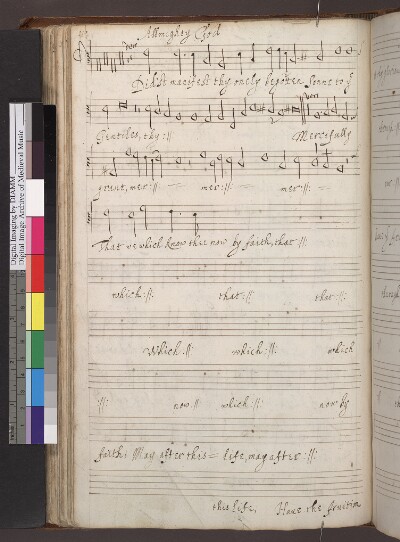 Allmighty God
Didst manifest thy onlly begoten Sonne to yͤ
Gentiles, thy :||: Mercyfully
graunt, mer :||: mer :||: mer :||:
That we which know thee now by faith, that :||:
which :||: that :||: that :||:
Which :||: which :||: which
:||: now :||: which :||: now by
faith: May after this = life, may after :||:
this life, Haue the fruition
Digital Imaging by DIAMM
Digital Image Archive of Medieval Music